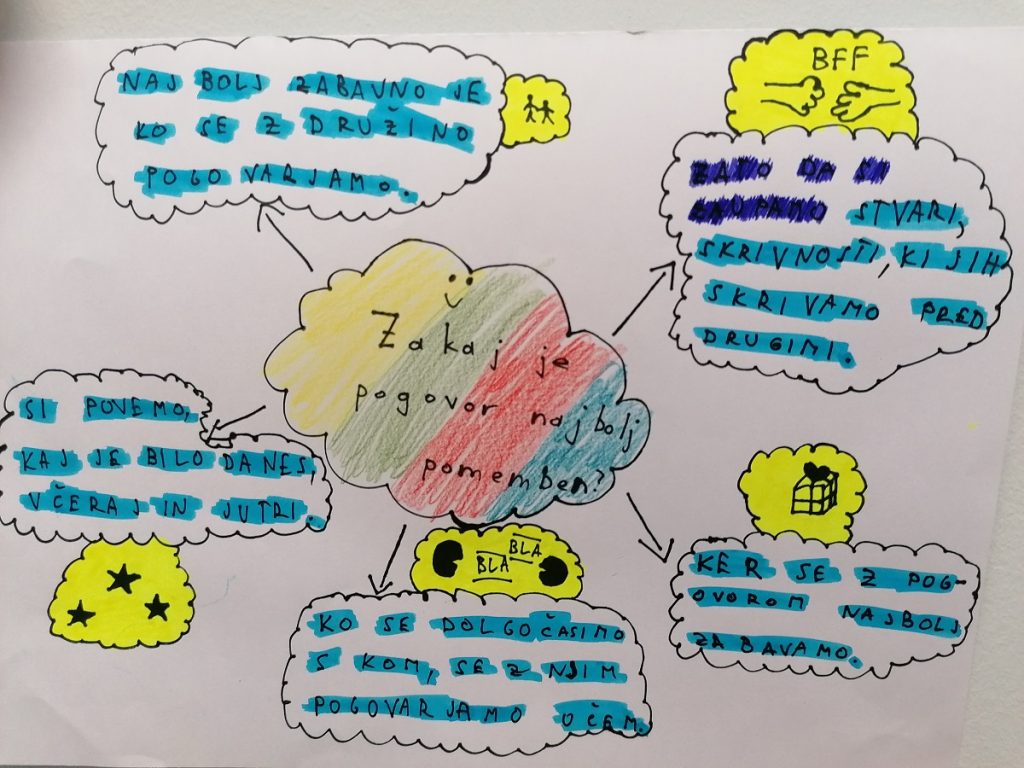 NAJ BOLJ ZABAVNO JE
KO SE Z DRUŽINO
POGOVARJAMO.
BFF
ZATO DA SI
ZAUPAMO STVARI,
SKRIVNOSTI, KI JIH
SKRIVAMO PRED
DRUGIMI.
Zakaj je
pogovor najbolj
pomemben?
SI POVEMO,
KAJ JE BILO DANES,
VČERAJ IN JUTRI.
BLA
BLA
KO SE DOLGOČASIMO
S KOM, SE Z NJIM
POGOVARJAMO O ČEM.
KER SE Z POG-
OVOROM NAJBOLJ
ZABAVAMO.